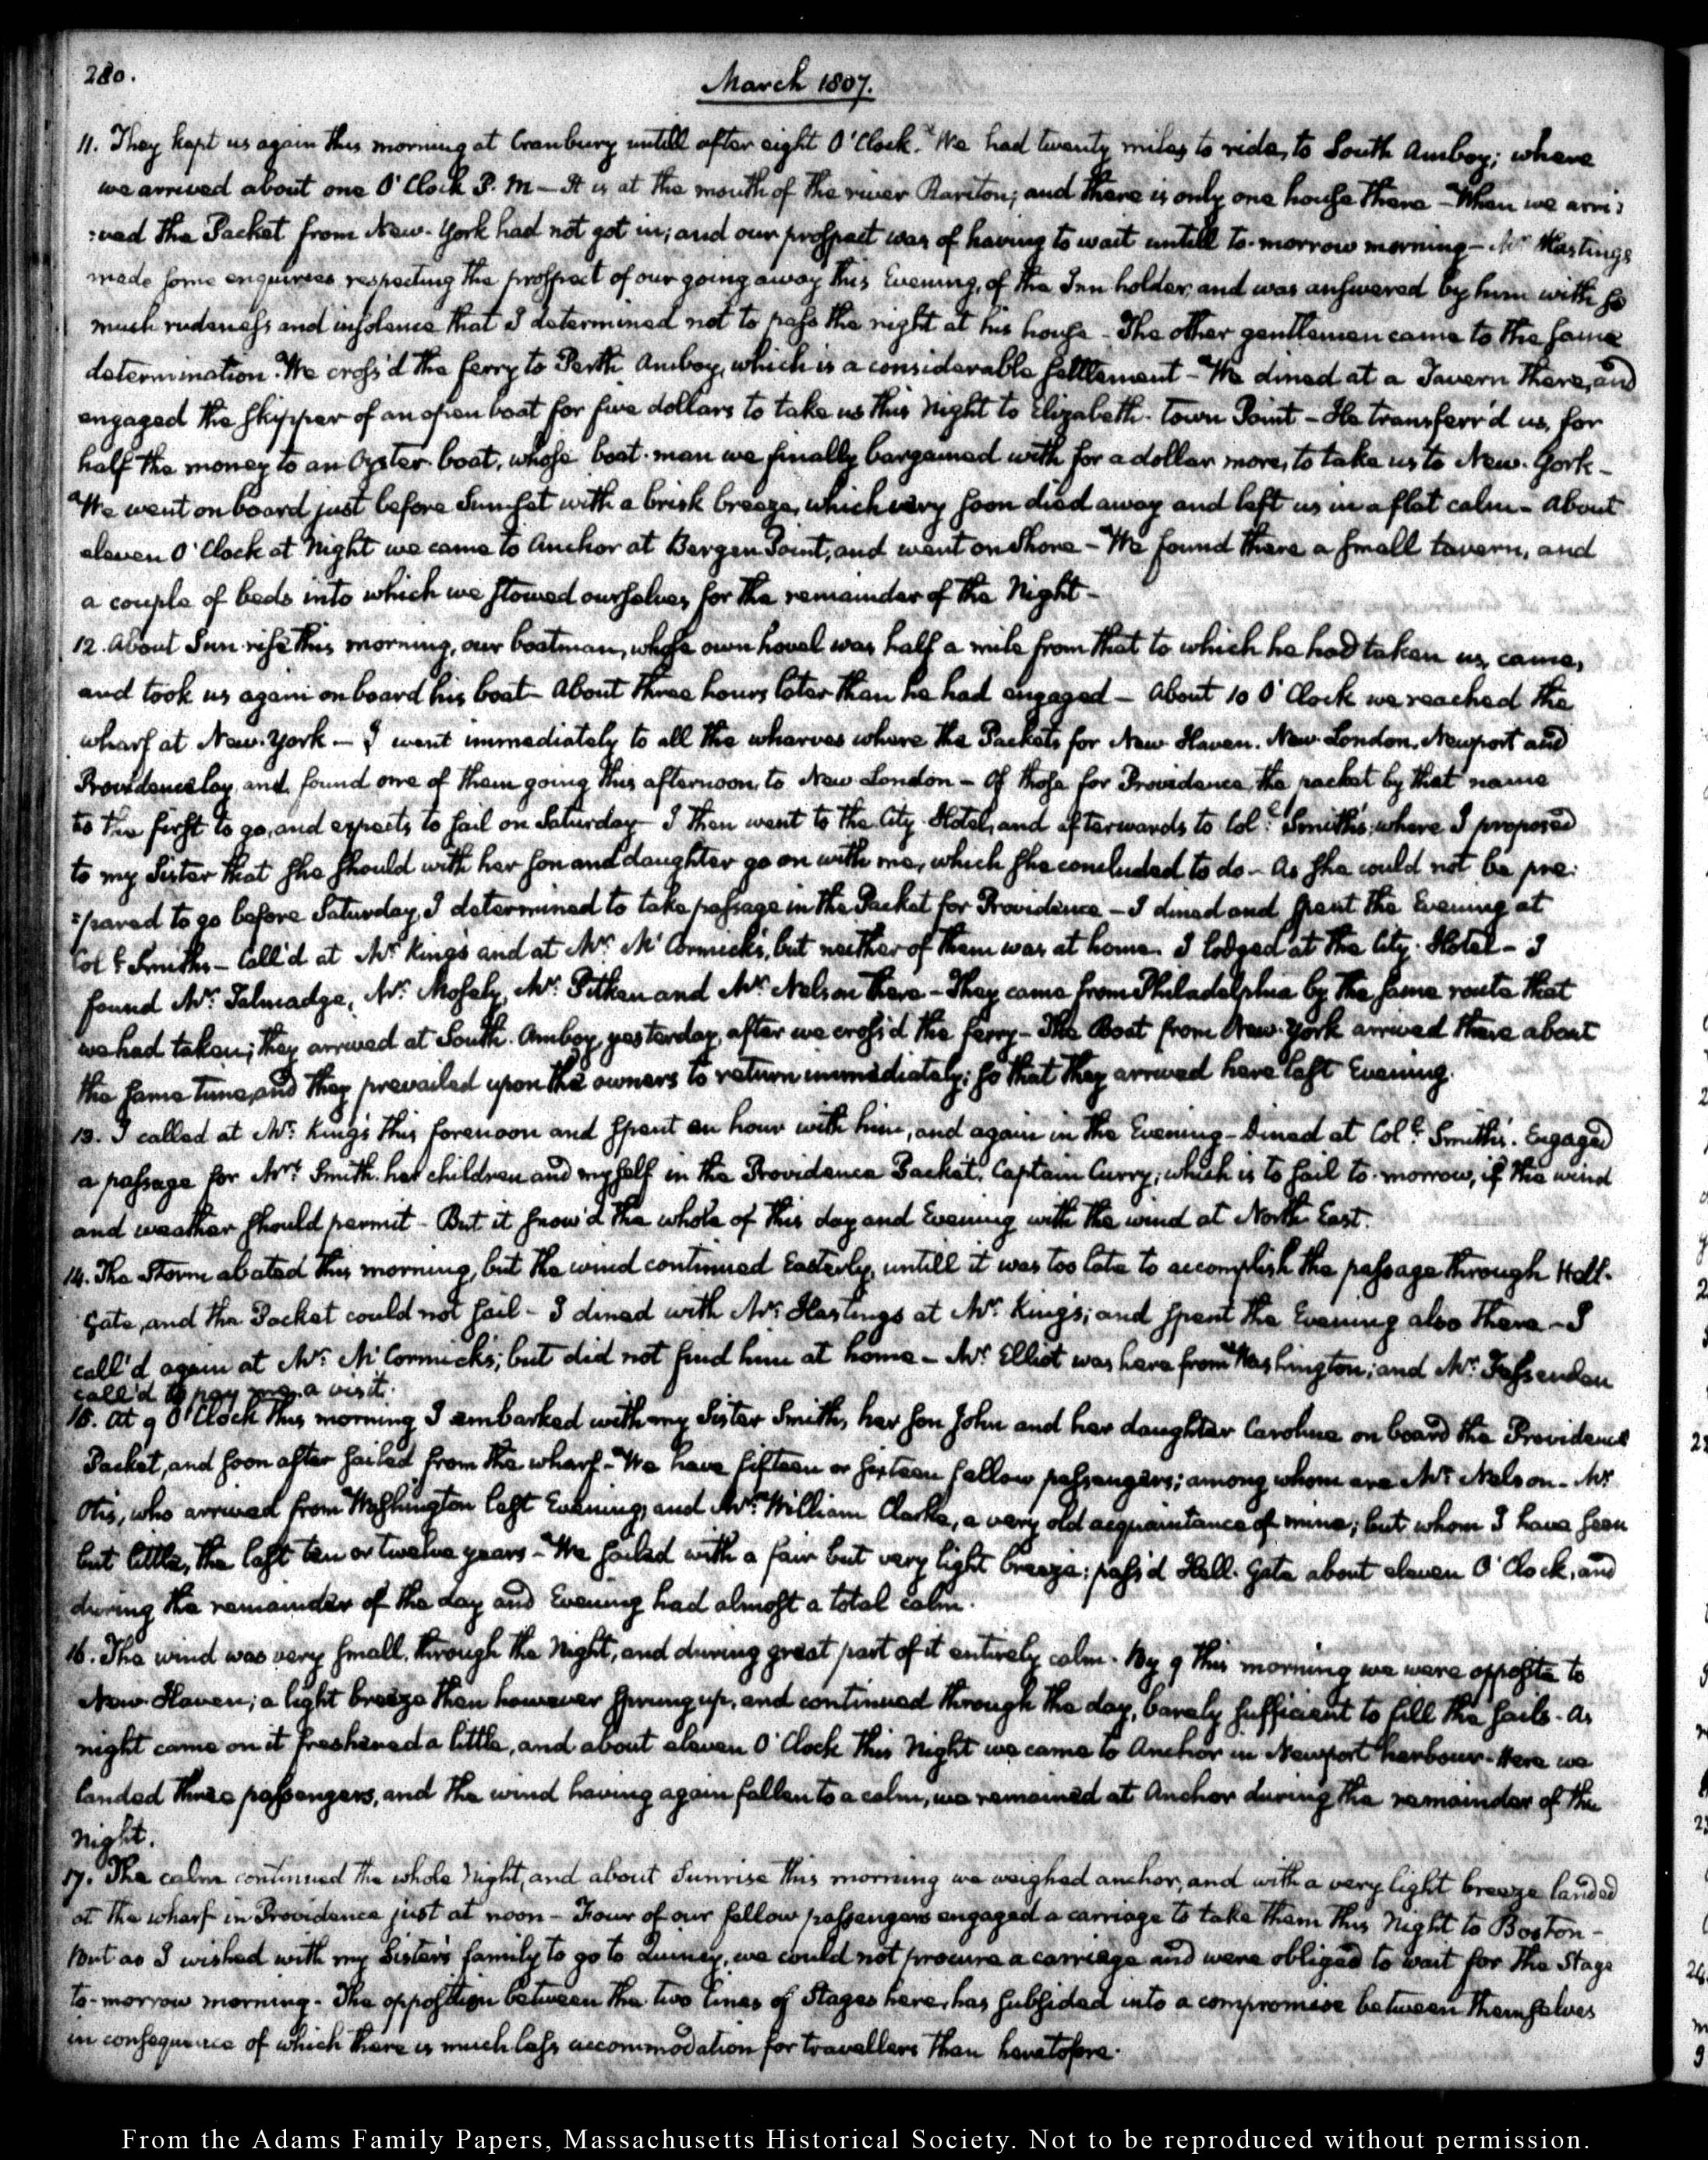 280.
March 1807.
11. They kept us again this morning at Cranbury untill after eight O'Clock. We had twenty miles to ride, to South Amboy; where
we arrived about one O'Clock P.M — It is at the mouth of the river Rariton; and there is only one house there — When we arri:
:ved the Packet from New-York had not got in; and our prospect was of having to wait untill to-morrow morning — Mr Hastings
made some enquiries respecting the prospect of our going away this Evening, of the Inn holder, and was answered by him with so
much rudeness and insolence that I determined not to pass the night at his house — The other gentlemen came to the same
determination. We cross'd the ferry to Perth Amboy, which is a considerable settlement — We dined at a Tavern there, and
engaged the skipper of an open boat for five dollars to take us this Night to Elizabeth-town Point — He transferr'd us, for
half the money to an Oyster-boat, whose boat-man we finally bargained with for a dollar more, to take us to New-York —
We went on board just before Sunset with a brisk breeze, which very soon died away and left us in a flat calm — About
eleven O'Clock at Night we came to Anchor at Bergen Point, and went on Shore — We found there a small tavern, and
a couple of beds into which we stowed ourselves for the remainder of the Night —
12. About Sun-rise this morning, our boatman, whose own hovel was half a mile from that to which he had taken us, came,
and took us again on board his boat — About three hours later than he had engaged — About 10 O'Clock we reached the
wharf at New-York — I went immediately to all the wharves where the Packets for New Haven, New-London, Newport and
Providence lay, and found one of them going this afternoon, to New London — Of those for Providence, the packet by that name
is the first to go, and expects to sail on Saturday — I then went to the City Hotel, and afterwards to Coll. Smith's, where I proposed
to my Sister that she should with her son and daughter go on with me, which she concluded to do — As she could not be pre:
:pared to go before Saturday, I determined to take passage in the Packet for Providence — I dined and spent the Evening at
Coll. Smith's — Call'd at Mr. King's and at Mr. McCormick's, but neither of them was at home. I lodged at the City-Hotel — I
found Mr. Talmadge, Mr. Mosely, Mr. Pitken and Mr. Nelson there — They came from Philadelphia by the same route that
we had taken; they arrived at South-Amboy, yesterday, after we cross'd the ferry — The Boat from New-York arrived there about
the same time, and they prevailed upon the owners to return immediately; so that they arrived here last Evening.
13. I called at Mr. King's this forenoon and spent an hour with him, and again in the Evening — Dined at Coll. Smith's. Engaged
a passage for Mrs. Smith, her children and myself in the Providence Packet, Captain Curry; which is to sail to-morrow, if the wind
and weather should permit — But it snow'd the whole of this day and Evening with the wind at North East.
14. The Storm abated this morning, but the wind continued Easterly, untill it was too late to accomplish the passage through Hell-
Gate, and the Packet could not sail — I dined with Mr. Hastings at Mr. King's; and spent the Evening also there — I
call'd again at Mr. McCormick's; but did not find him at home — Mr. Elliot was here from Washington; and Mr. Fessenden
call'd to pay me a visit.
15. At 9 O'Clock this morning I embarked with my Sister Smith, her son John and her daughter Caroline on board the Providence
Packet, and soon after sailed from the wharf — We have fifteen or sixteen fellow passengers; among whom are Mr. Nelson — Mr
Otis, who arrived from Washington last Evening, and Mr. William Clarke, a very old acquaintance of mine; but whom I have seen
but little, the last ten or twelve years — We sailed with a fair but very light breeze; pass'd Hell-Gate about eleven O'Clock, and
during the remainder of the day and Evening had almost a total calm.
16. The wind was very small, through the Night, and during great part of it entirely calm. By 9 this morning we were opposite to
New-Haven; a light breeze then however sprung up, and continued through the day, barely sufficient to fill the sails — As
night came on it freshened a little, and about eleven O'Clock this Night we came to Anchor in Newport harbour — Here we
landed three passengers, and the wind having again fallen to a calm, we remained at Anchor during the remainder of the
Night.
17. The calm continued the whole Night, and about Sunrise this morning we weighed anchor, and with a very light breeze landed
at the wharf in Providence just at noon — Four of our fellow passengers engaged a carriage to take them this Night to Boston —
But as I wished with my Sister's family to go to Quincy, we could not procure a carriage and were obliged to wait for the Stage
to-morrow morning — The opposition between the two lines of Stages here, has subsided into a compromise between themselves
in consequence of which there is much less accommodation for travellers than heretofore.
From the Adams Family Papers, Massachusetts Historical Society. Not to be reproduced without permission.